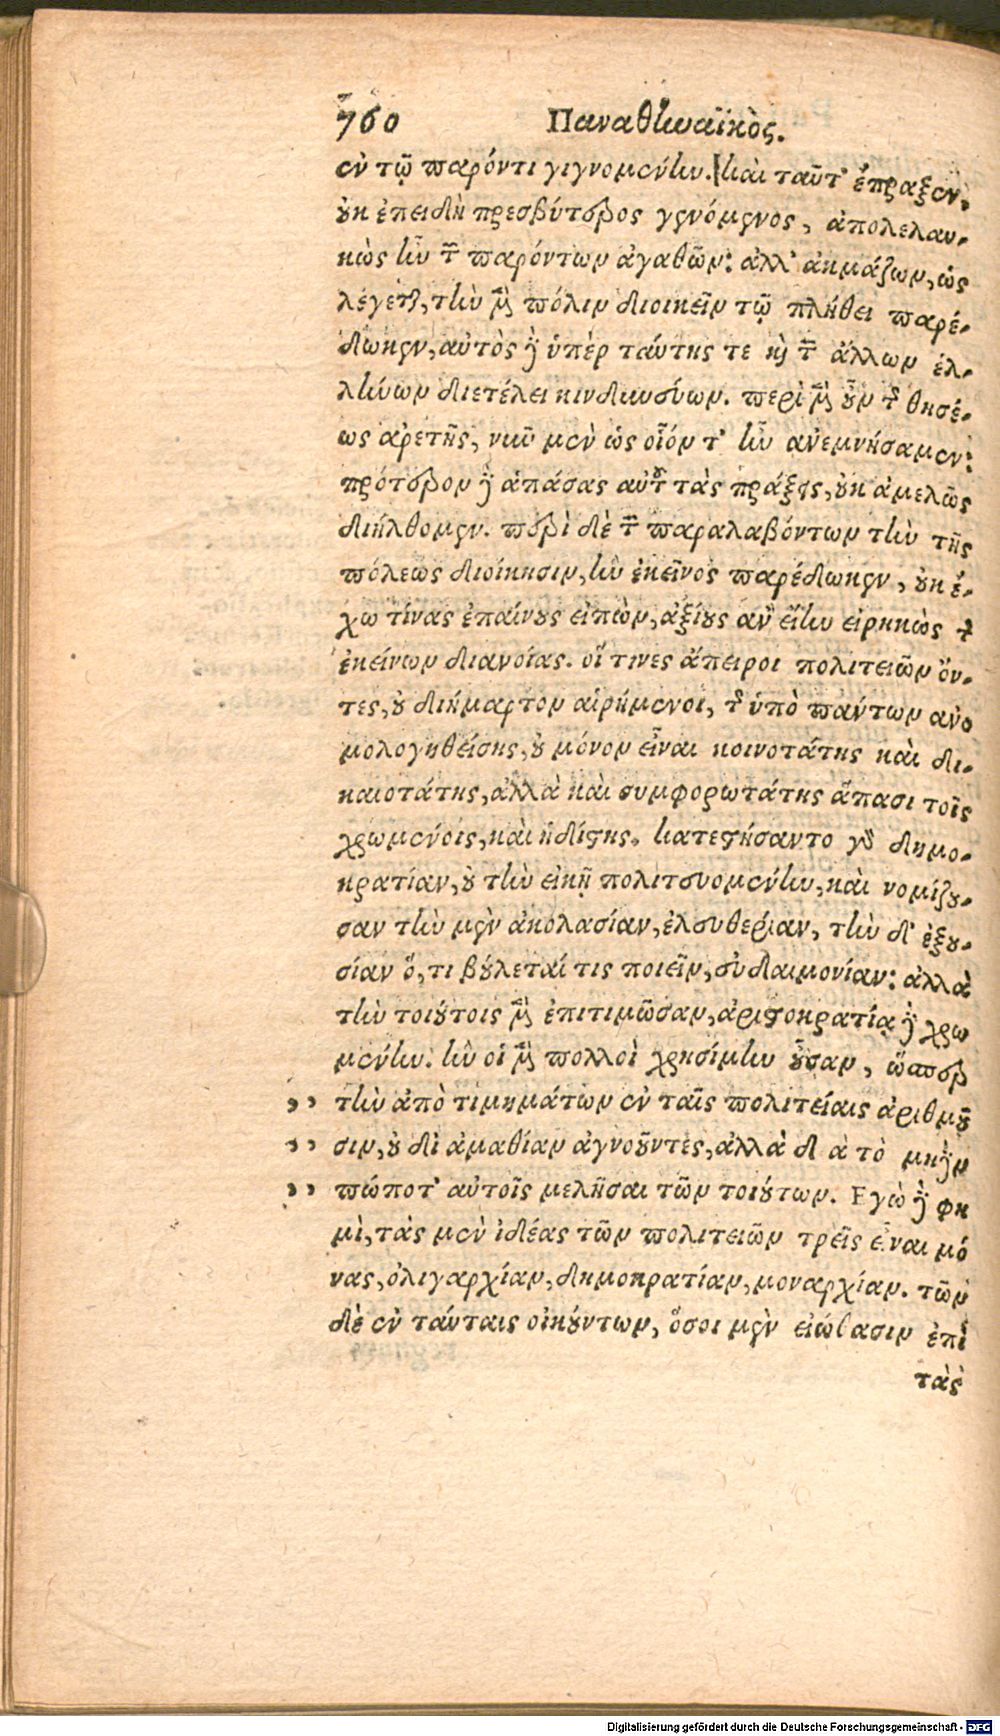 760 Παναθηναϊκὸς.
ἐν τῷ παρόντι γιγνομένην. καὶ ταῦτ' ἔπραξεν,
οὐκ ἐπειδὴ πρεσβύτερος γενόμενος, ἀπολελαυ-
κὼς ἦν τῶν παρόντων ἀγαθῶν: ἀλλ' ἀκμάζων, ὡς
λέγεται, τὴν μὲν πόλιν διοικεῖν τῷ πλήθει παρέ-
δωκεν, αὐτὸς δ' ὑπὲρ ταύτης τε καὶ τῶν ἄλλων ἑλ-
λήνων διετέλει κινδυνεύων. περὶ μὲν οὖν τῆς θησέ-
ως ἀρετῆς, νῦν μὲν ὡς οἷόν τ' ἦν ἀνεμνήσαμεν:
πρότερον δ' ἁπάσας αὐτοῦ τὰς πράξεις, οὐκ ἀμελῶς
διήλθομεν. περὶ δὲ τῶν παραλαβόντων τὴν τῆς
πόλεως διοίκησιν, ἣν ἐκεῖνος παρέδωκεν, οὐκ ἔ-
χω τίνας ἐπαίνους εἰπὼν, ἀξίους ἂν εἴην εἰρηκὼς τῆς
ἐκείνων διανοίας. οἵ τινες ἄπειροι πολιτειῶν ὄν-
τες, οὐ διήμαρτον αἱρήμενοι, τῆς ὑπὸ πάντων ἀνο
μολογηθείσης, οὐ μόνον εἶναι κοινοτάτης καὶ δι-
καιοτάτης, ἀλλὰ καὶ συμφορωτάτης ἅπασι τοῖς
χρωμένοις, καὶ ἡδίστης. κατεστήσαντο γὰρ δημο-
κρατίαν, οὐ τὴν εἰκῇ πολιτευομένην, καὶ νομίζου-
σαν τὴν μὲν ἀκολασίαν, ἐλευθερίαν, τὴν δ' ἐξου-
σίαν ὅ, τι βούλεταί τις ποιεῖν, εὐδαιμονίαν: ἀλλὰ
τὴν τοιούτοις μὲν ἐπιτιμῶσαν, ἀριστοκρατίᾳ δὲ χρω
μένην. ἣν οἱ μὲν πολλοὶ χρησίμην οὖσαν, ὥσπερ
,, τὴν ἀπὸ τιμημάτων ἐν ταῖς πολιτείαις ἀριθμοῦ
,, σιν, οὐ δι ἀμαθίαν ἀγνοοῦντες, ἀλλὰ δ ὰ τὸ μηδὲν
,, πώποτ' αὐτοῖς μελῆσαι τῶν τοιούτων. Ἐγὼ δὲ φη
μὶ, τὰς μὲν ἰδέας τῶν πολιτειῶν τρεῖς εἶναι μό
νας, ὀλιγαρχίαν, δημοκρατίαν, μοναρχίαν. τῶν
δὲ ἐν ταύταις οἰκούντων, ὅσοι μὲν εἰώθασιν ἐπὶ
τὰς
Digitalisierung gefördert durch die Deutsche Forschungsgemeinschaft - DFG